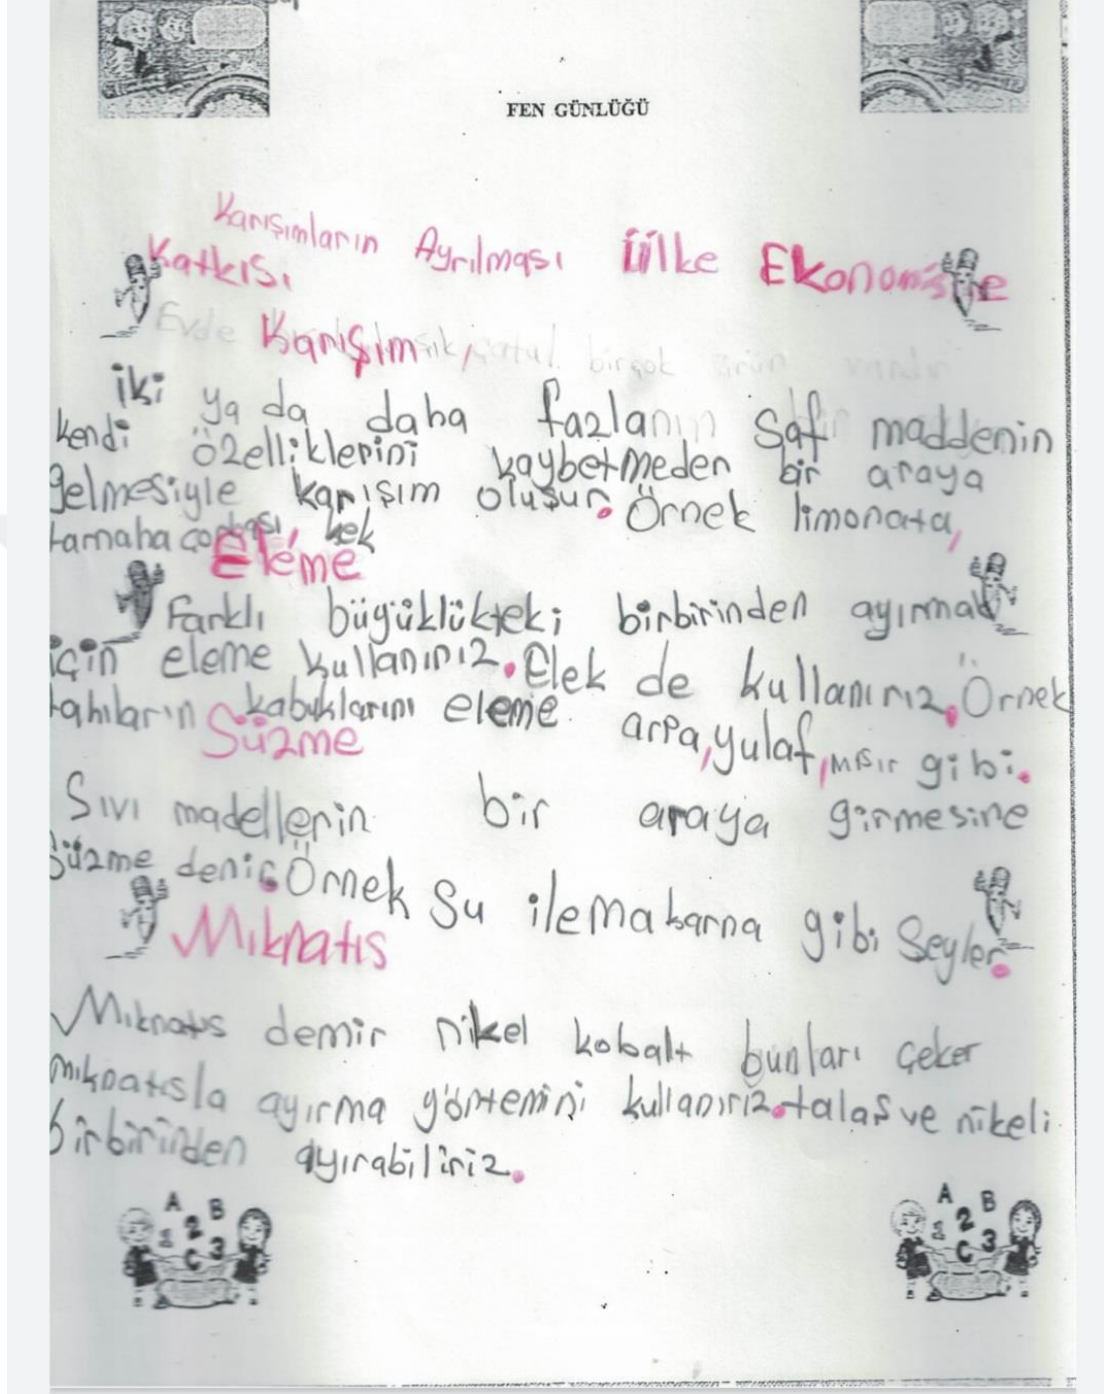 FEN GÜNLÜĞÜ
Karışımların Ayrılması Ülke Ekonomisine
Katkısı
Evde birçok ürün vardır
Karışım
iki ya da daha fazlanın saf maddenin
kendi özelliklerini kaybetmeden bir araya
gelmesiyle karışım oluşur. Örnek limonata,
kek
Eleme
Farklı büyüklükteki birbirinden ayırmak
için eleme kullanırız. Elek de kullanırız. Örnek
tahıların kabuklarını eleme arpa, yulaf, mısır gibi.
Süzme
Sıvı madellerin bir araya girmesine
Süzme denir. Örnek Su ile makarna gibi Şeyler.
Mıknatıs
Mıknatıs demir nikel kobalt bunları çeker
mıknatısla ayırma yöntemini kullanırız. talaş ve nikeli
birbirinden ayırabiliriz.
A B
1 2
C 3
A B
1 2
C 3